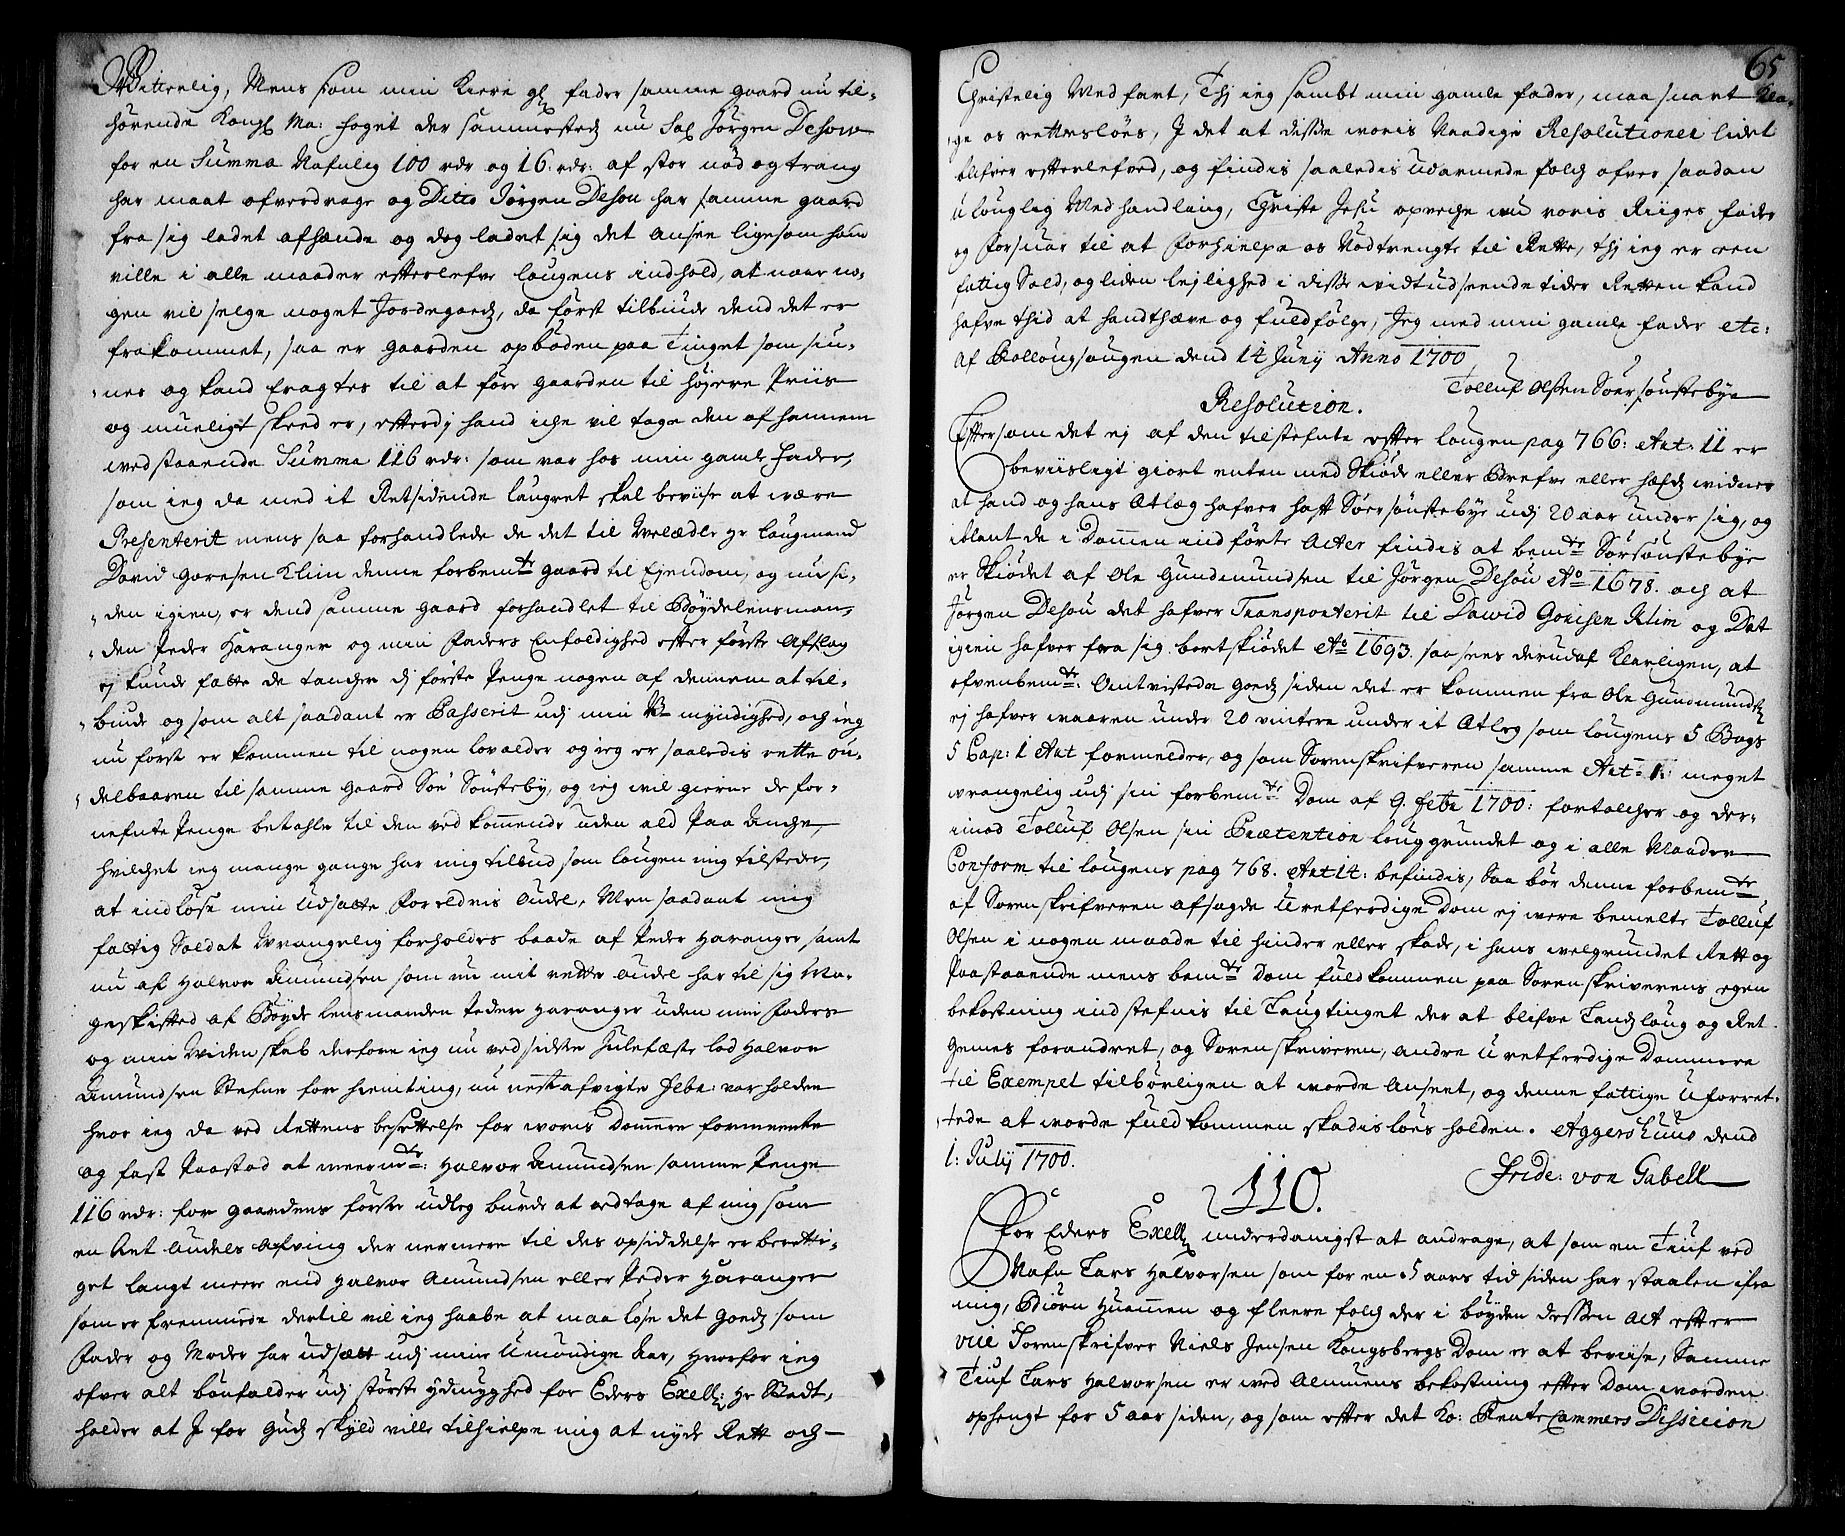 Witterlig, Mens som min Kiere gl fader samme gaard nu til-
hørende Kongl Ma: foget der sammesteds nu Sal Jørgen Desow
for en Summa Nafnlig 100 rdr og 16 rdr: af stor nød og trang
har maat ofverdrage og Ditto Jørgen Desou har samme gaard
fra sig ladet afhænde og dog ladet sig det ansee ligesom hand
ville i alle maader efterlefve lougens indhold, at naar no-
gen vil selge noget Jordegoeds, da først tilbiude dend det er
frakommet, saa er gaarden opboden paa Tinget som sin-
nes og kand Eragtes til at føre gaarden til højere Priis
og mueligt skeed er, efterdj hand iche vil tage den af hannem
wedstaaende Summa 116 rdr: som var hos min gamle Fader,
som ieg da med it Retsidende laugret skal beviise at være
Presenterit mens saa forhandlede de det til Welædle Hr Laugmand
David Goresen Klim denne forbemte gaard til Ejendom, og nu si-
den igien, er dend samme gaard forhandlet til Bøydelensman-
den Peder Haranger og min Faders Enfoldighed efter første Afslag
ej kunde fatte de tancher dj første Penge nogen af dennem at til-
biude og som alt saadant er Passerit udj min U myndighed, och ieg
nu først er kommen til nogen lovalder og ieg er saaledis rette ou-
delbaaren til samme gaard Søe Sønsteby, og ieg vil gierne de for-
nefnte Penge betahle til den ved kommende uden ald Paa Anche,
hvilchet ieg mange gange har mig tilbud som lougen mig tilsteder,
at indløse min Udsatte Foreldris Oudel, Men saadant mig
fattig Soldat Wrangelig forholdes baade af Peder Haranger samt
nu af Halvor Amundsen som nu mit rette oudel har til sig Ma-
geskifted af Bøyde lensmanden Peder Haranger uden min Faders
og min Widenskab derfore ieg nu ved sidste Julefæste lod Halvor
Amundsen Stefne for hiemting, nu nest afvigte Febr: var holden
hvor ieg da ved Rettens besettelse for woris Dommere formeente
og fast Paastod at meerbemte: Halvor Amundsen samme Penge
116 rdr: for gaardens første udleg burde at vedtage af mig som
en Ret Audels Afving der nermere til des opsiddelse er beretti-
get langt meere end Halvor Amundsen eller Peder Haranger
som er fremmede dertil vil ieg haabe at maa løse det Goeds som
Fader og Moder har udsatt udj mine Umøndige Aar, Hvorfor ieg
ofver alt bønfalder udj største ydmyghed for Eders Exell: Hr Stadt-
holder at I for Guds skyld ville tilhielpe mig at nyde Rett och
65
Christelig Medfart, Thj ieg sambt min gamle fader, maa snart Kla-
ge os rettesløes, I det at disse woris Naadige Resolutioner lidet
blifver efterlefved, og findis saaledis Udarmede folch ofver saadan
ulouglig Medhandling, Christe Jesu opveche nu voris Riiges fader
og Forsvar til at forhielpe os Nødtrengte til Rette, thj ieg er een
fattig Sold, og liden lejlighed i disse widtudseende tider Retten kand
hafve thid at handthæve og fuldfølge, Jeg med min gamle fader etc:
af Rollougsougen dend 14 Junij Anno 1700
Tolluf Olsen Søer sønstebye
Resolution.
Eftersom det ej af den tilstefnte efter lougen pag 766: Art: 11 er
beviisligt giort enten med Skiøde eller Brefve eller hæfds widner
at hand og hans Atlæg hafver haft Søersønstebye udj 20 aar under sig, og
iblant de i Dommen indførte Acter findis at bemte Sørsønstebye
er Skiødet af Ole Gundmundsen til Jørgen Desou Ao 1678. och at
Jørgen Desou det hafver Transporterit til Dawid Gorisen Klim og Det
igien hafver fra sig bortskiødet Ao 1693. saa sees derudaf Klarligen, at
ofvenbemte: Omtvistede goeds siden det er kommen fra Ole Gundmunds
ej hafver waaren under 20 vintere under it Atleg som lougens 5 Bogs
5 Cap: 1 Art formelder, og som Sorenskrifveren samme Art: 1: meget
wrangelig udj sin forbemte Dom af 9. Febr 1700: fortolcher og der-
imod Tolluf Olsen sin Prætention louggrundet og i alle Maader
Conform til lougens pag 768. Art 14: befindis, Saa bør denne forbemte
af Sorenskrifveren afsagde Uretferdige Dom ej were bemelte Tolluf
Olsen i nogen maade til hinder eller skade, i hans welgrundet Rett og
Paastaaende mens bemte Dom fuldkommen paa Sorenskriverens egen
bekostning indstefnis til Laugtinget der at blifve Landsloug og Ret-
gemes forandret, og Sorenskriveren, andre Uretferdige Dommere
til Exempel tilbørligen at worde Anseet, og denne fattige Uforret-
tede at worde fuldkommen skadisløes holden. Aggershuus dend
1: Julij 1700.
Fride: von Gabell
110.
For Eders Exell underdanigst at andrage, at som en Tiuf ved
Nafn Lars Halvorsen som for en 5 aars tid siden har staalen ifra
mig, Biørn Huammen og fleere folch der i bøyden dessen Act efter
vue Sorenskrifver Niels Jensen Kongsbergs Dom er at beviise, Samme
Tiuf Lars Halvorsen er wed Almuens bekostning efter Dom worden
ophengt for 5 aar siden, og som efter det Ko: Rente Cammers Dissicion